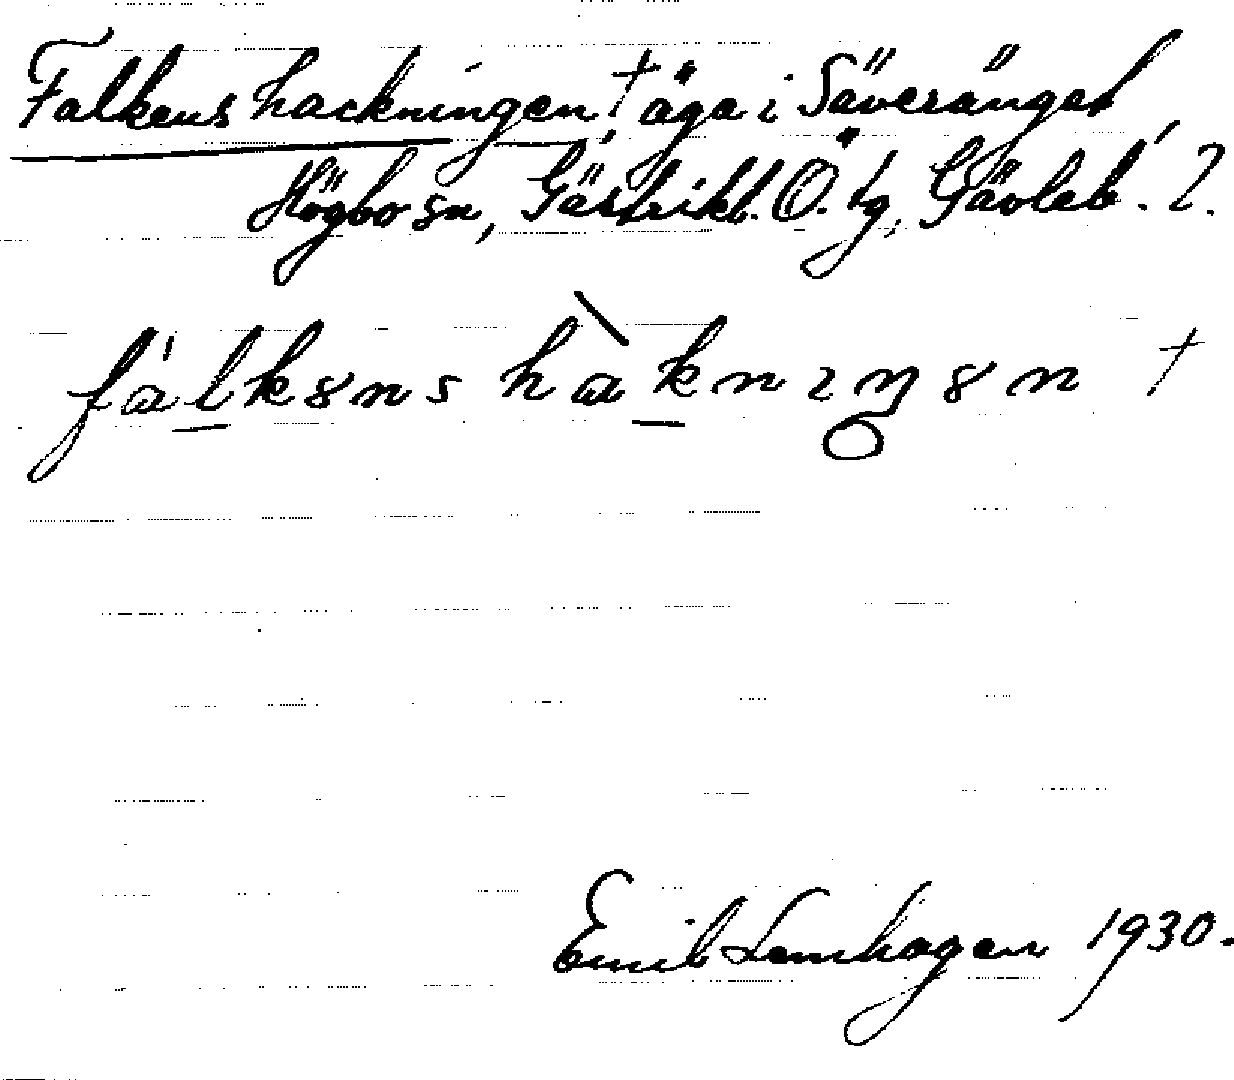 Falkens hackningen,† äga i Säverängat,
Högbo sn, Gästrikl. Ö. tg, Gävleb. l.
fa'lkəns hàknıŋən †
Emil Lenhagen 1930.